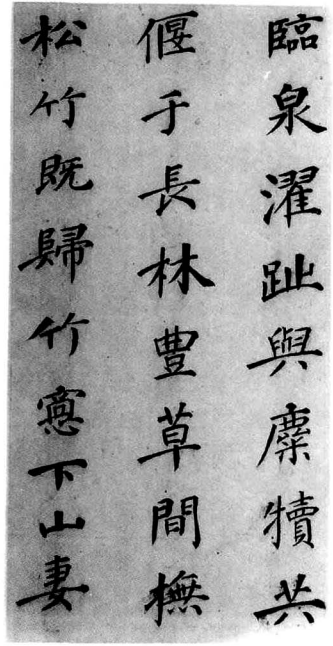 臨泉濯趾與麋犢共
偃于長林豊草間撫
松竹既歸竹窻下山妻